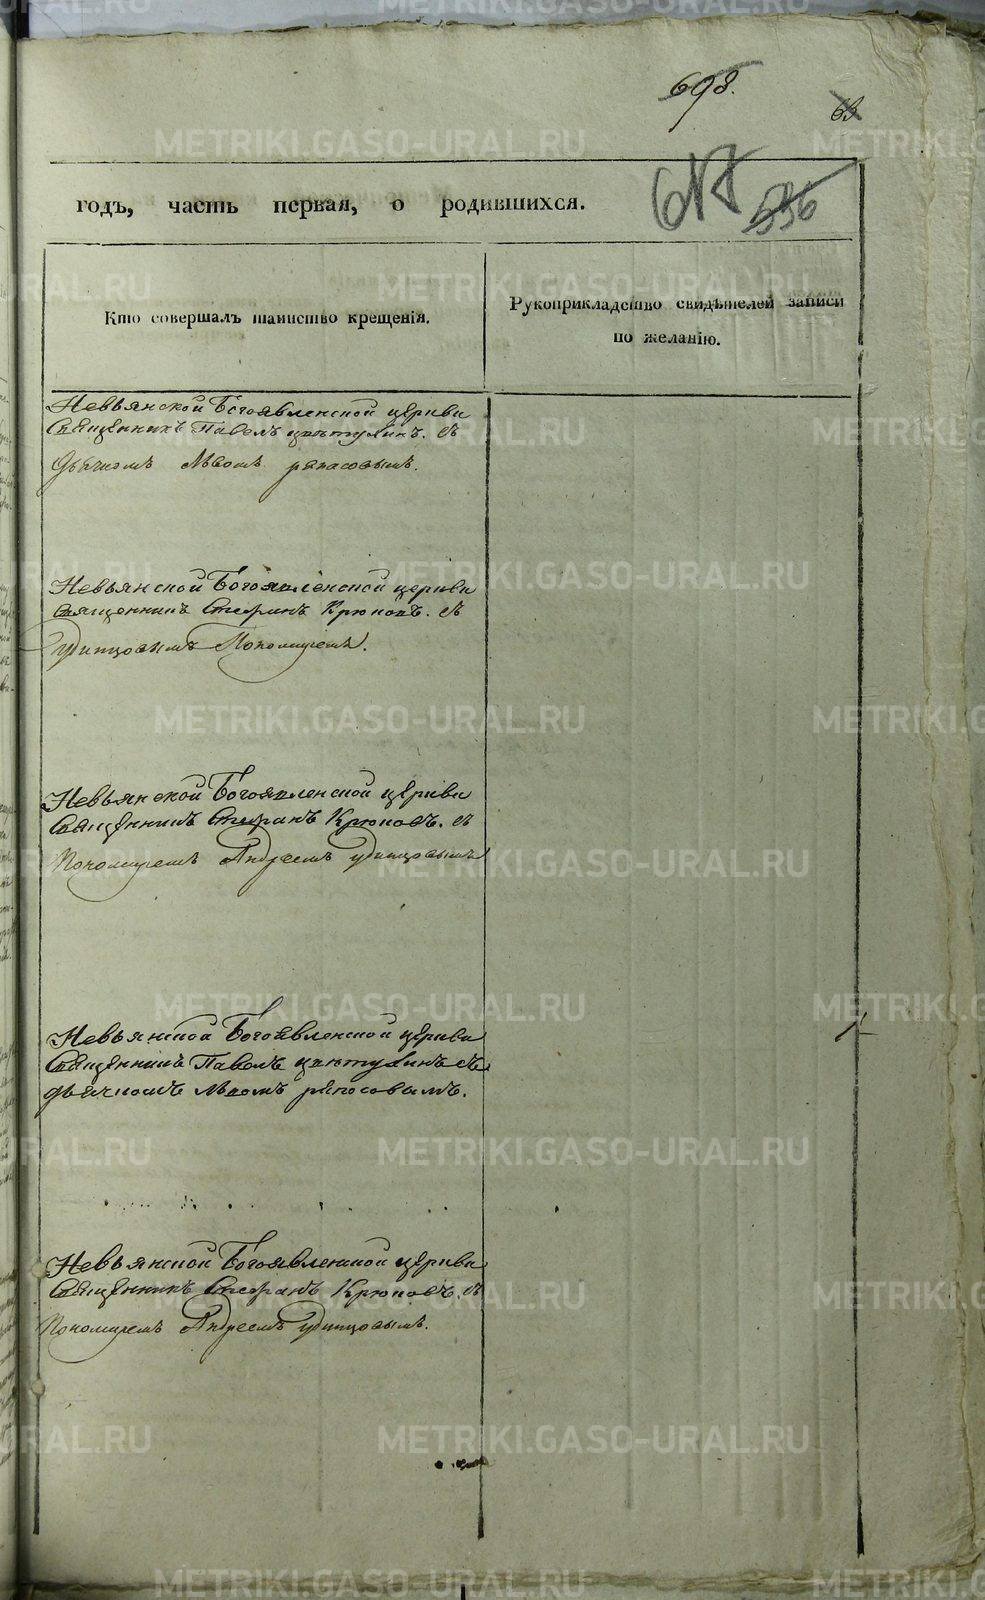 698.
63
617
536
годъ, часть первая, о родившихся.
Кто совершалъ таинство крещенія.
Рукоприкладство свидѣтелей записи
по желанію.
Невьянской Богоявленской церкви
Священникъ Павелъ съ
Дьячкомъ Львомъ
Невьянской Богоявленской церкви
священникъ Стефанъ Крюковъ. съ
Удинцовымъ Пономаремъ.
Невьянской Богоявленской церкви
Священникъ Стефанъ Крюковъ. съ
Пономаремъ Андреемъ Удинцовымъ
Невьянской Богоявленской церкви
Священникъ Павелъ съ
дьячкомъ Львомъ
Невьянской Богоявленской церкви
Священникъ Стефанъ Крюковъ. съ
Пономаремъ Андреемъ Удинцовымъ.
METRIKI.GASO-URAL.RU